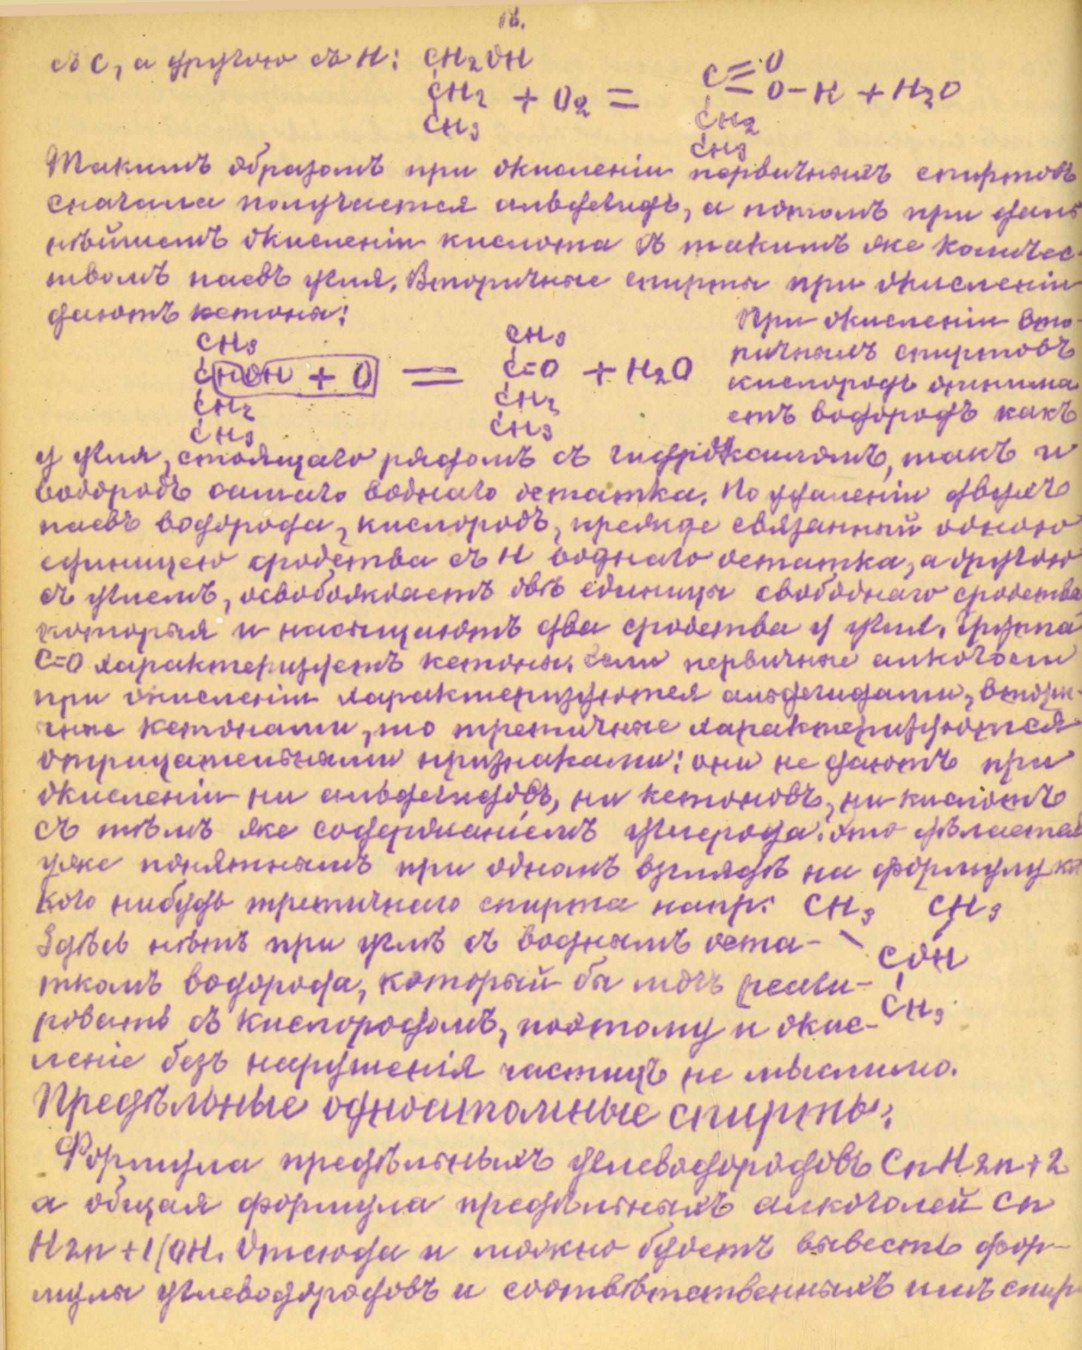 18.
съ С, а другою съ Н: CH2OH
CH2 + O2 = C=O O-H + H2O
CH3 CH2
CH3
Такимъ образомъ при окисленіи первичныхъ спиртовъ
сначала получается альдегидъ, а потомъ при даль
нѣйшемъ окисленіи кислота съ такимъ же количес-
твомъ паевъ угля. Вторичные спирты при окисленіи
даютъ кетоны:
CH3 CH3
CHOH + O = C=O + H2O
CH2 CH2
CH3 CH3
При окисленіи вто-
ричнымъ спиртовъ
кислородъ отнима
етъ водородъ какъ
у угля, стоящаго рядомъ съ гидроксиломъ, такъ и
водородъ самаго воднаго остатка. По удаленіи двухъ
паевъ водорода, кислородъ, прежде связанный одною
единицею сродства съ Н воднаго остатка, а другою
съ углемъ, освобождаетъ двѣ единицы свободнаго сродства
которыя и насыщаютъ два сродства у угля. Группа
C=O характеризуетъ кетоны. Если первичные алкоголи
при окисленіи характеризуются альдегидами, втори-
чные кетонами, то третичные характеризуются
отрицательными признаками: они не даютъ при
окисленіи ни альдегидовъ, ни кетоновъ, ни кислотъ
съ тѣмъ же содержаніемъ углерода. Это дѣлается
уже понятнымъ при одномъ взглядѣ на формулу ка
кого нибудь третичнаго спирта напр: CH3 CH3
Здѣсь нѣтъ при углѣ съ воднымъ оста- COH
ткомъ водорода, который бы могъ реаги- CH3
ровать съ кислородомъ, поэтому и окис-
леніе безъ нарушенія частицъ не мыслимо.
Предѣльные одноатомные спирты:
Формула предѣльныхъ углеводородовъ CnH2n+2
а общая формула предѣльныхъ алкоголей Cn
H2n+1(OH. Отсюда и можно будетъ вывесть фор-
мулы углеводородовъ и соотвѣтственныхъ имъ спир